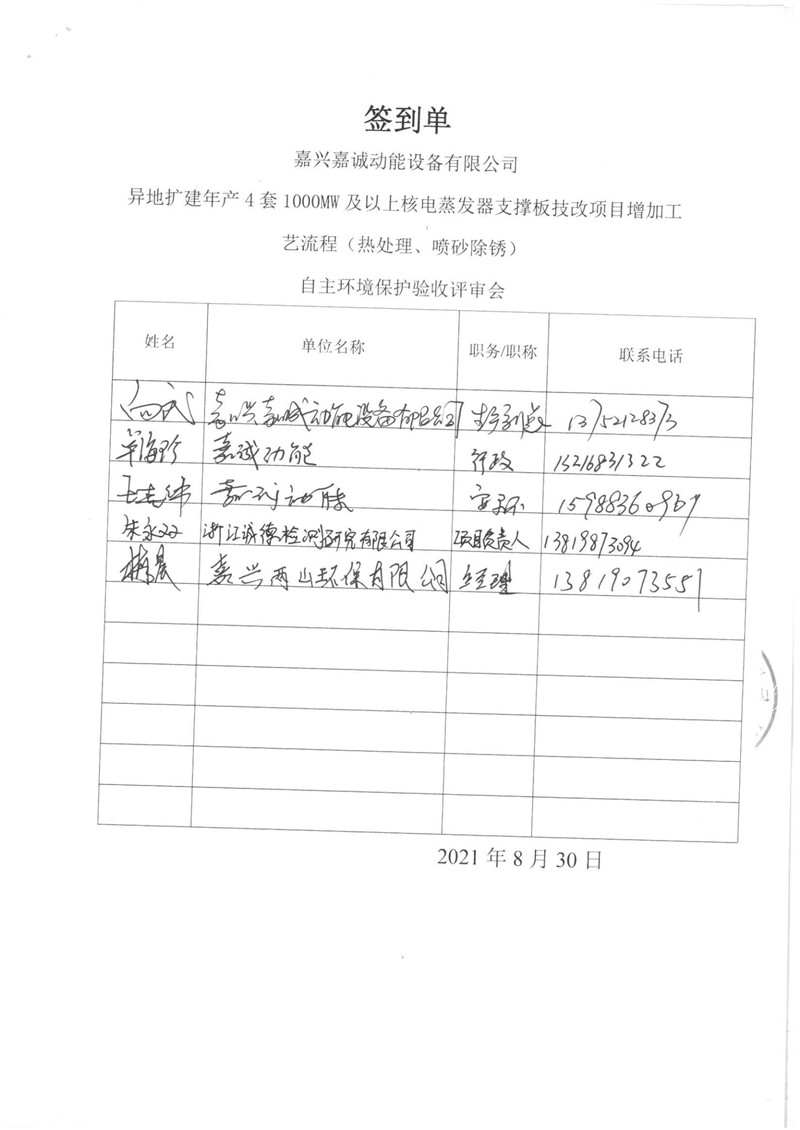 签到单
嘉兴嘉诚动能设备有限公司
异地扩建年产4套1000MW及以上核电蒸发器支撑板技改项目增加工
艺流程（热处理、喷砂除锈）
自主环境保护验收评审会
姓名 单位名称 职务/职称 联系电话
向武 嘉兴嘉诚动能设备有限公司 13752128373
单海珍 嘉诚动能 行政 15216831322
嘉诚动能 安环 15988360967
朱永双 浙江诚德检测研究有限公司 项目负责人 13819873094
杨晨 嘉兴两山环保有限公司 经理 13819073551
2021年8月30日